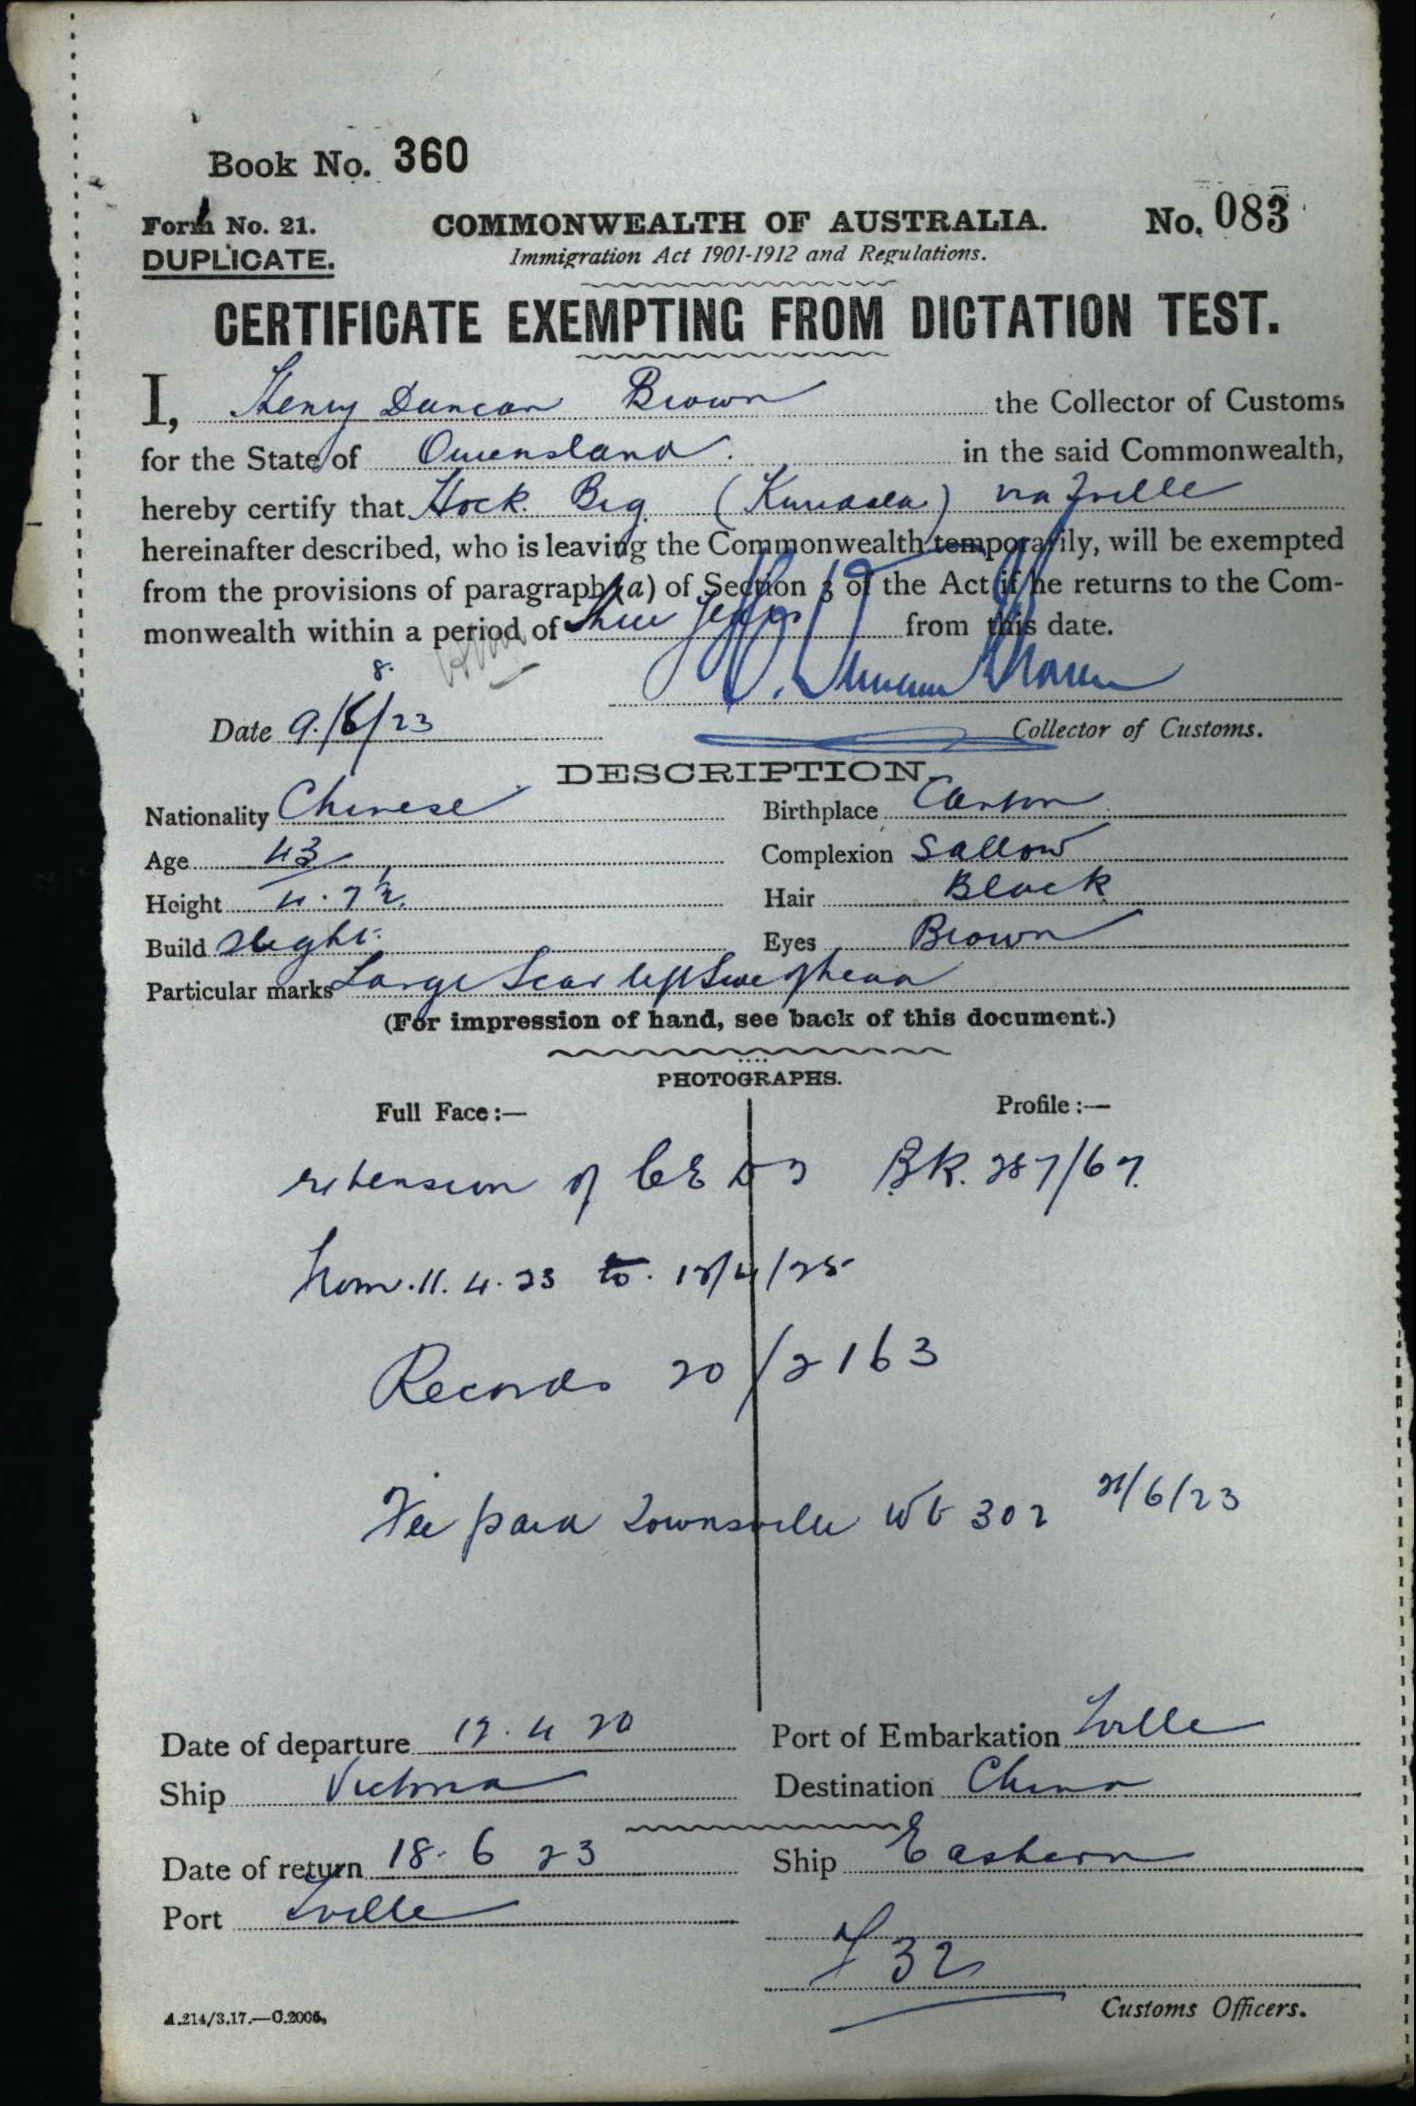 Book No. 360
Form No. 21.
DUPLICATE.
COMMONWEALTH OF AUSTRALIA.
No. 083
Immigration Act 1901-1912 and Regulations.
CERTIFICATE EXEMPTING FROM DICTATION TEST.
I, Henry Duncan Brown the Collector of Customs
for the State of Queensland in the said Commonwealth,
hereby certify that Hock Beg via Tville
hereinafter described, who is leaving the Commonwealth temporarily, will be exempted
from the provisions of paragraph (a) of Section 3 of the Act if he returns to the Com-
monwealth within a period of three years from this date.
8.
Date 9/6/23
Collector of Customs.
DESCRIPTION.
Nationality Chinese
Birthplace Canton
Age 43
Complexion Sallow
Height 4.7½
Hair Black
Build Slight
Eyes Brown
Particular marks Large Scar left side of head
(For impression of hand, see back of this document.)
PHOTOGRAPHS.
Full Face:—
Profile:—
extension of CEDT BK. 287/67
from 11.4.23 to 12/4/25
Records 20/2163
Fee paid Townsville 302 21/6/23
Date of departure 12.4 20
Port of Embarkation Tville
Ship Victoria
Destination China
Date of return 18.6 23
Ship Eastern
Port Tville
F 32
Customs Officers.
A.214/3.17.—C.2005.